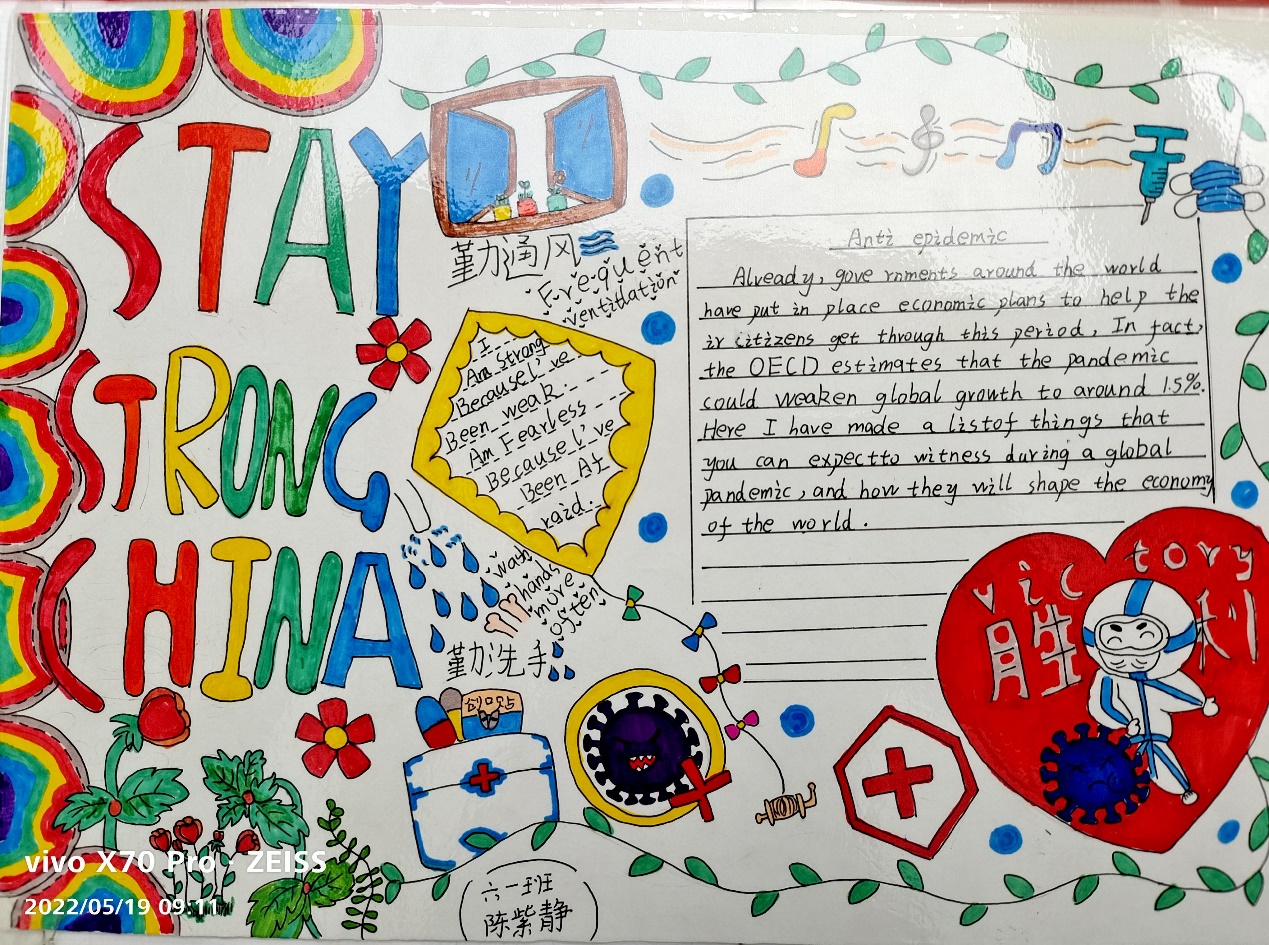 STAY
STRONG
CHINA
勤通风
Frequent
ventilation
I
Am Strong
Because I've
Been weak.
Am Fearless
Because I've
Been Af
raid.
wash
hands
more
often
勤洗手
Anti epidemic
Already, gove rnments around the world
have put in place economic plans to help the
ir citizens get through this period, In fact,
the OECD estimates that the pandemic
could weaken global growth to around 1.5%.
Here I have made a listof things that
you can expectto witness during a global
pandemic, and how they will shape the economy
of the world.
Victory
胜利
六一班
陈紫静
vivo X70 Pro · ZEISS
2022/05/19 09:11